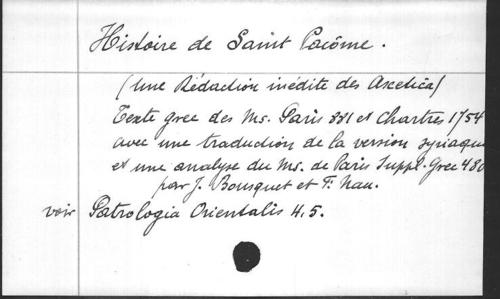 Histoire de Saint Pacôme.
(Une Rédaction inédite des Ascetica)
Texte grec des Ms. Paris 881 et Chartres 1754
avec une traduction de la version syriaque
et une analyse du Ms. de Paris Suppl. Grec 480
par J. Bousquet et F. Nau.
voir Patrologia Orientalis 4.5.